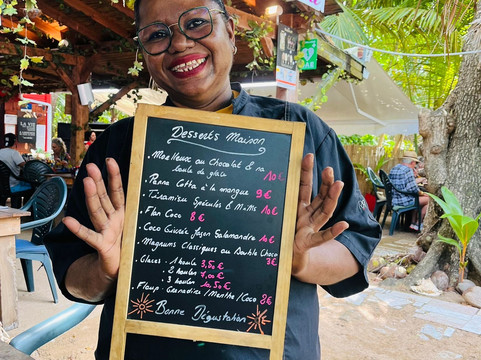 Desserts Maison
. Moelleux au Chocolat & sa
boule de glace 10€
. Panna Cotta à la mangue 9€
. Tiramisu Spéculos & M.Ms 10€
. Flan Coco 8€
. Coco Givrée façon Salamandre 10€
. Magnums Classiques ou Double Choco
3€
. Glaces : 1 boule 3,50€
2 boules 7,00€
3 boules 10,50€
. Floup : Grenadine/Menthe/Coco 2€
Bonne Dégustation